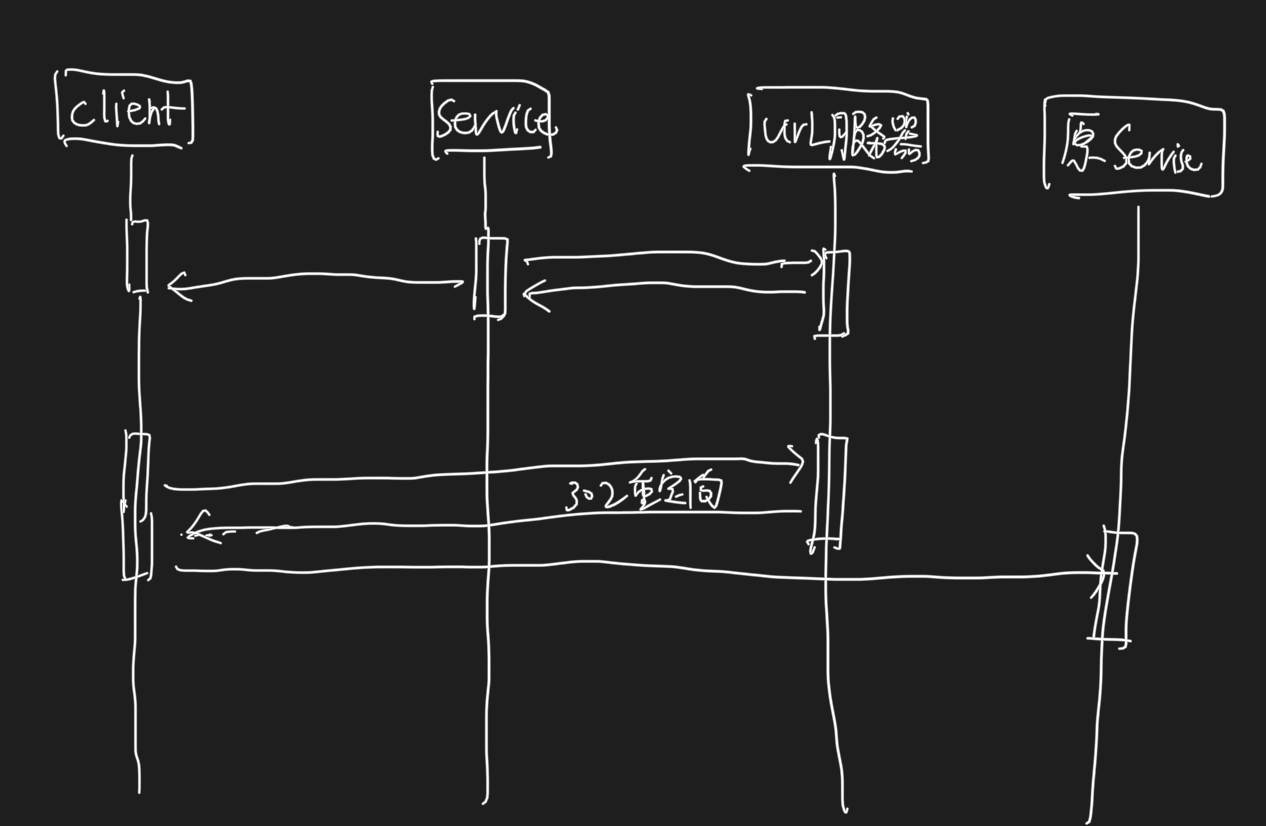 client
Service
urL服务器
原 Servise
302重定向